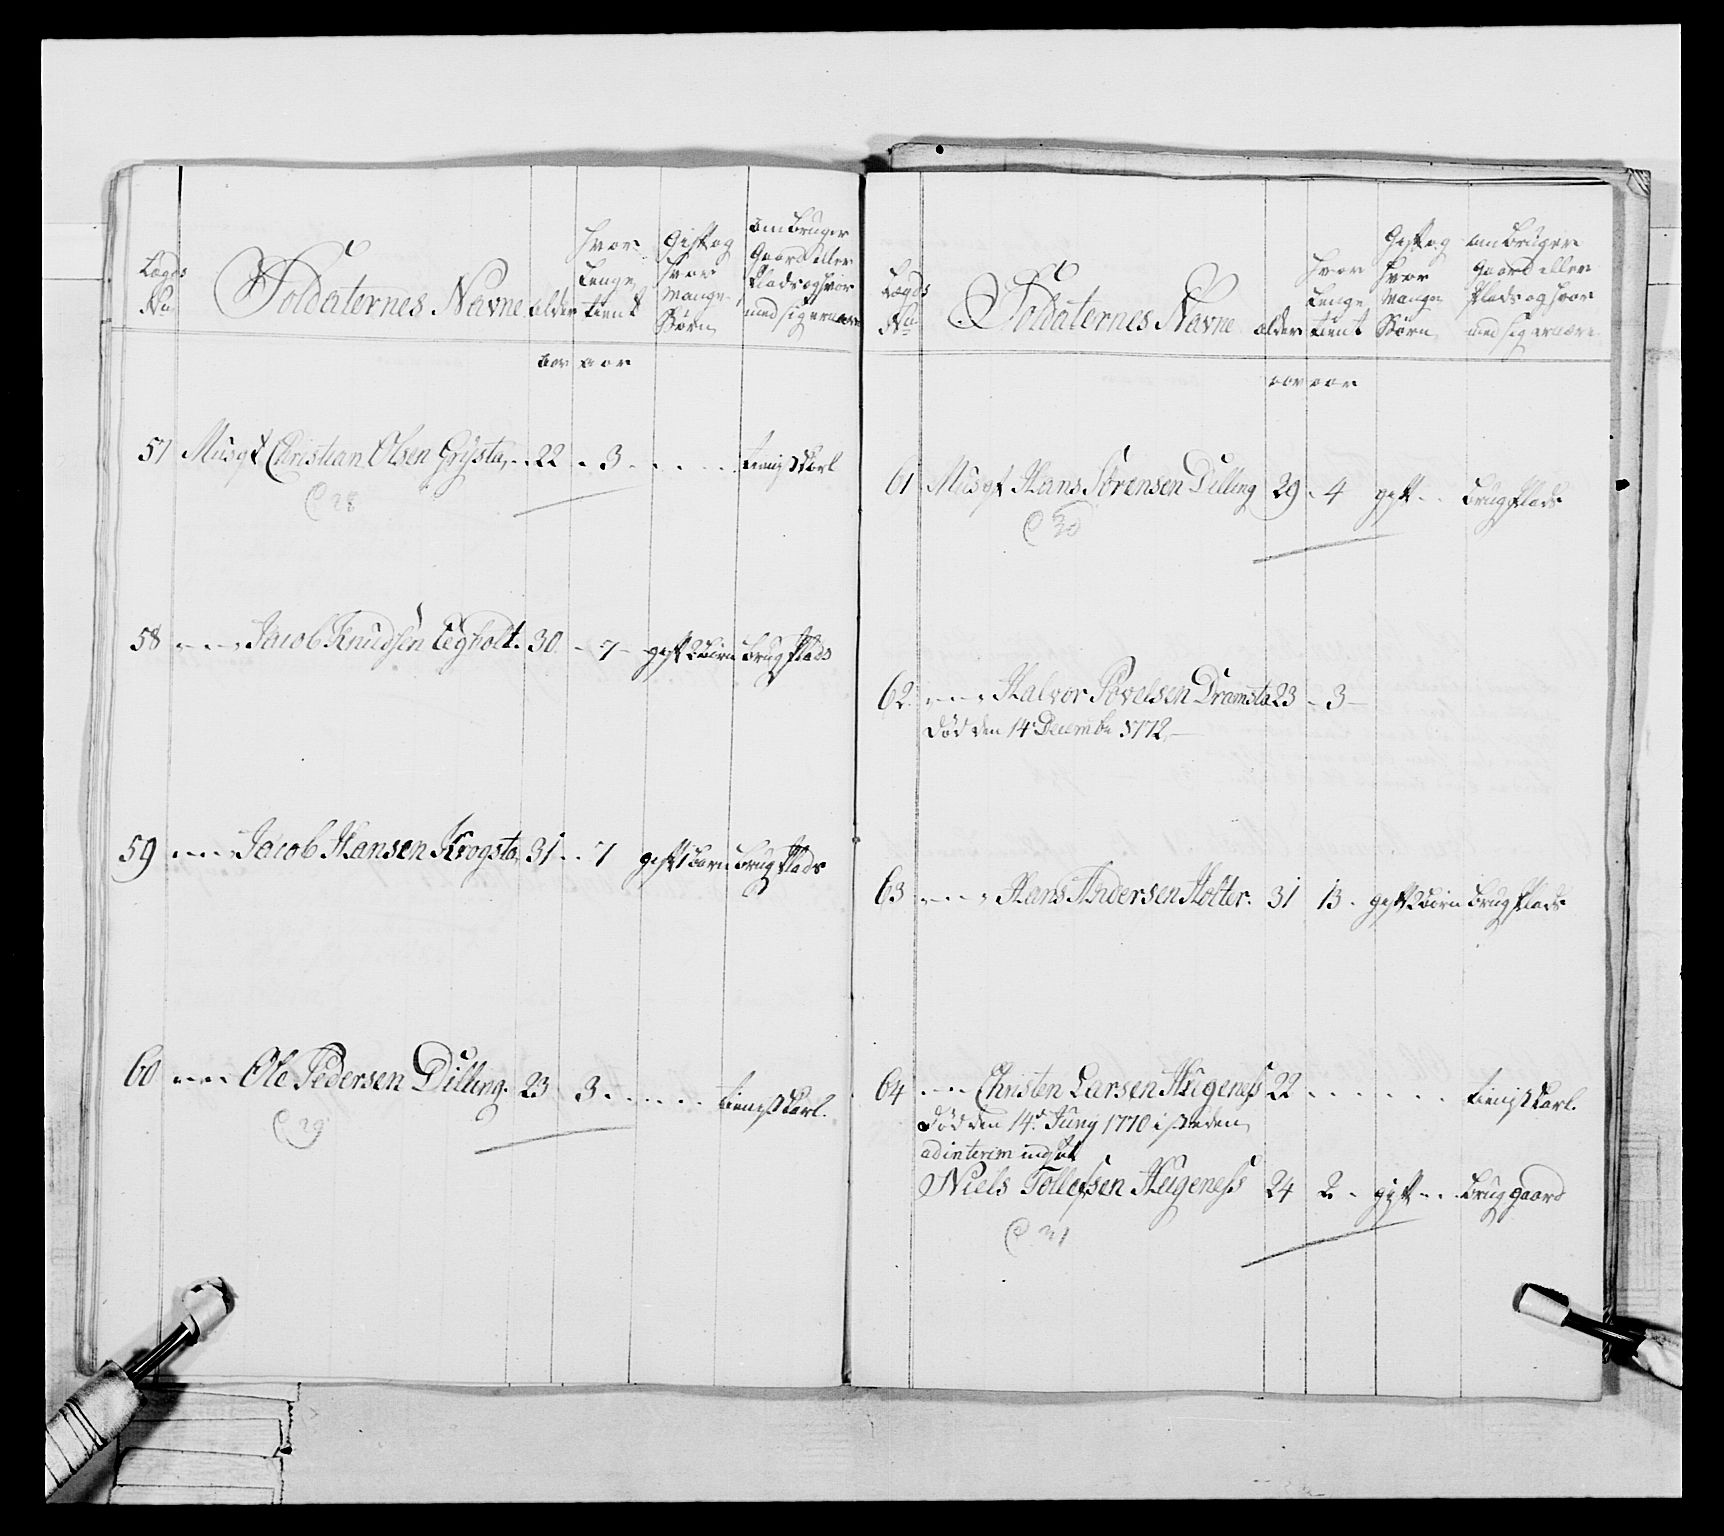 Lægds
No
Soldaternes Navne
alder
hvor
Lenge
tient
Gift og
hvor
mange
Børn
om bruger
Gaard eller
Plads og hvor
med sig ernære
aar aar
57 Musqt Christian Olsen Grÿsta 22 3 tienistkarl
C 28
58 Jacob Knudsen Eegholt 30 7 gift 2 børn brug Plads
59 Jacob Hansen Krogsta 31 7 gift 1 børn brug Plads
60 Ole Pedersen Dilling 23 3 tienistkarl
C 29
Lægds
No
Soldaternes Navne
alder
hvor
Lenge
tient
Gift og
hvor
mange
Børn
om bruger
Gaard eller
Plads og hvor
med sig ernære
aar aar
61 Musqt Hans Sørensen Dilling 29 4 gift brug Plads
C 30
62 Halvor Povelsen Dramsta 23 3
død den 14 Decembr 1772
63 Hans Andersen Holter 31 13 gift 2 børn brug Plads
64 Christen Larsen Hugeness 22 tienistkarl
død den 14de Juny 1770 i steden
ad interim indsat
Niels Tollefsen Hugeness 24 2 gift brug gaard
C 31